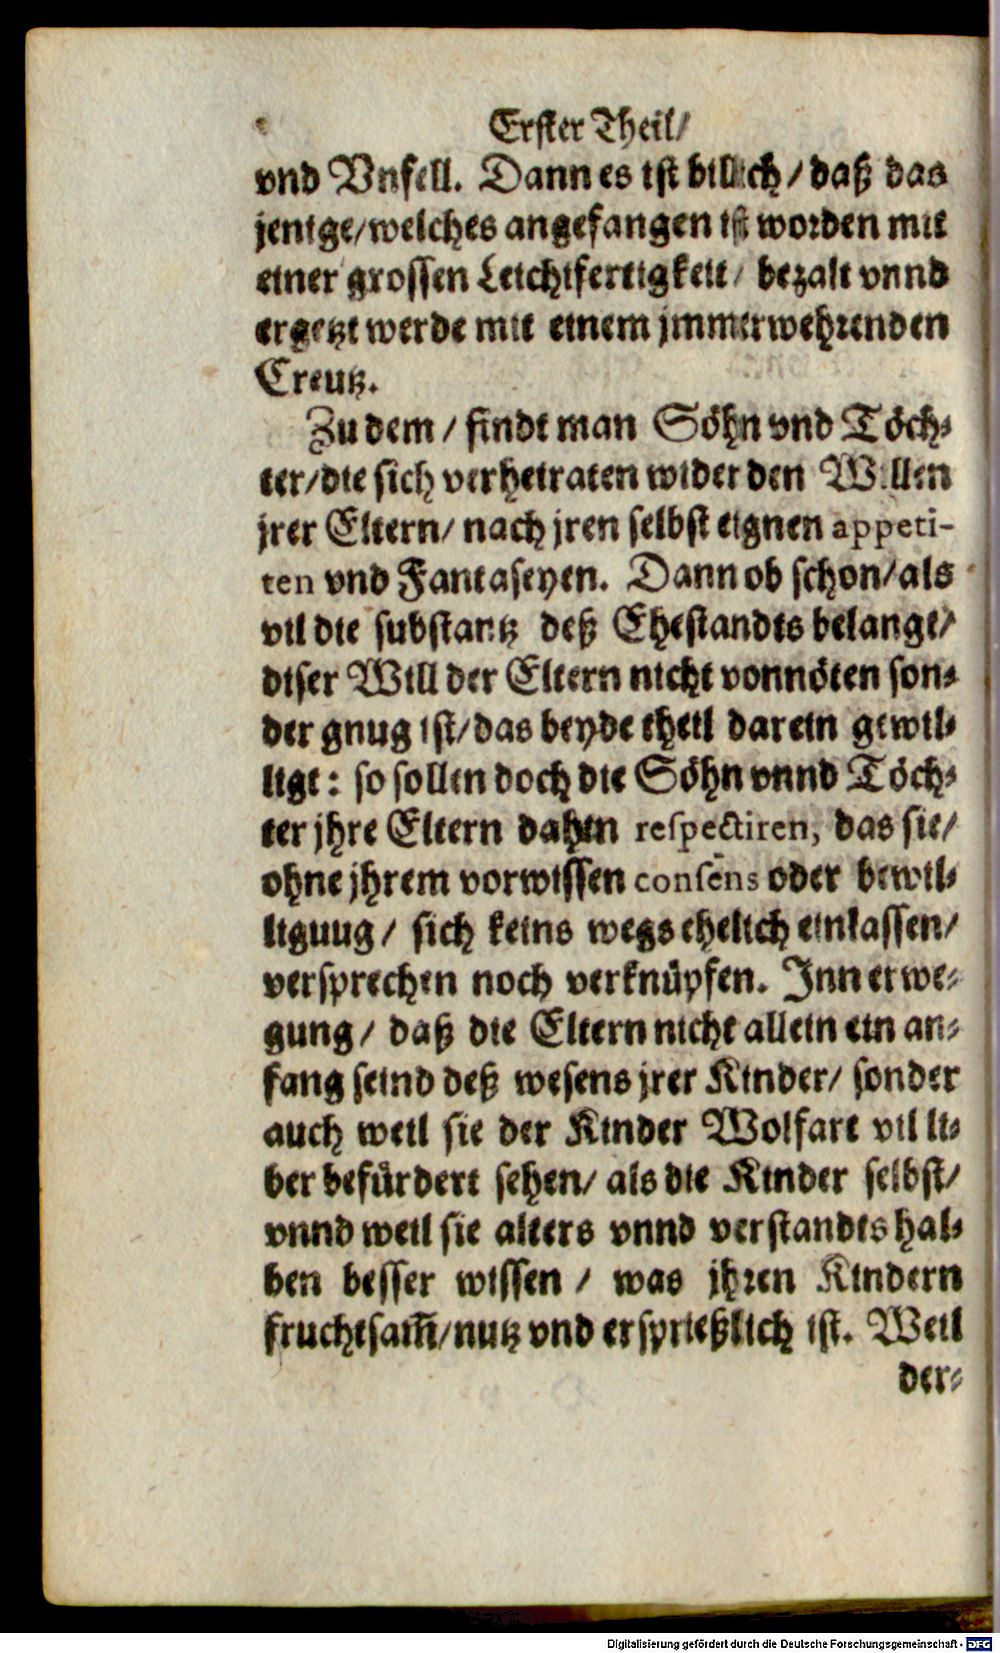 Erster Theil/
vnd Vnfell. Dann es ist billich/ daß das
jenige/welches angefangen ist worden mit
einer grossen Leichtfertigkeit/ bezalt vnnd
ergetzt werde mit einem jmmerwehrenden
Creutz.
Zu dem/ findt man Söhn vnd Töch⸗
ter/die sich verheiraten wider den Willen
jrer Eltern/ nach jren selbst eignen appeti-
ten vnd Fantaseyen. Dann ob schon/als
vil die substantz deß Ehestandts belangt/
diser Will der Eltern nicht vonnöten son⸗
der gnug ist/das beyde theil darein gewil⸗
ligt: so sollen doch die Söhn vnnd Töch⸗
ter jhre Eltern dahin respectiren, das sie/
ohne jhrem vorwissen consens oder bewil⸗
liguug/ sich keins wegs ehelich einlassen/
versprechen noch verknüpfen. Inn erwe⸗
gung/ daß die Eltern nicht allein ein an⸗
fang seind deß wesens jrer Kinder/ sonder
auch weil sie der Kinder Wolfart vil li⸗
ber befürdert sehen/ als die Kinder selbst/
vnnd weil sie alters vnnd verstandts hal⸗
ben besser wissen / was jhren Kindern
fruchtsam̃/nutz vnd ersprießlich ist. Weil
der⸗
Digitalisierung gefördert durch die Deutsche Forschungsgemeinschaft - DFG